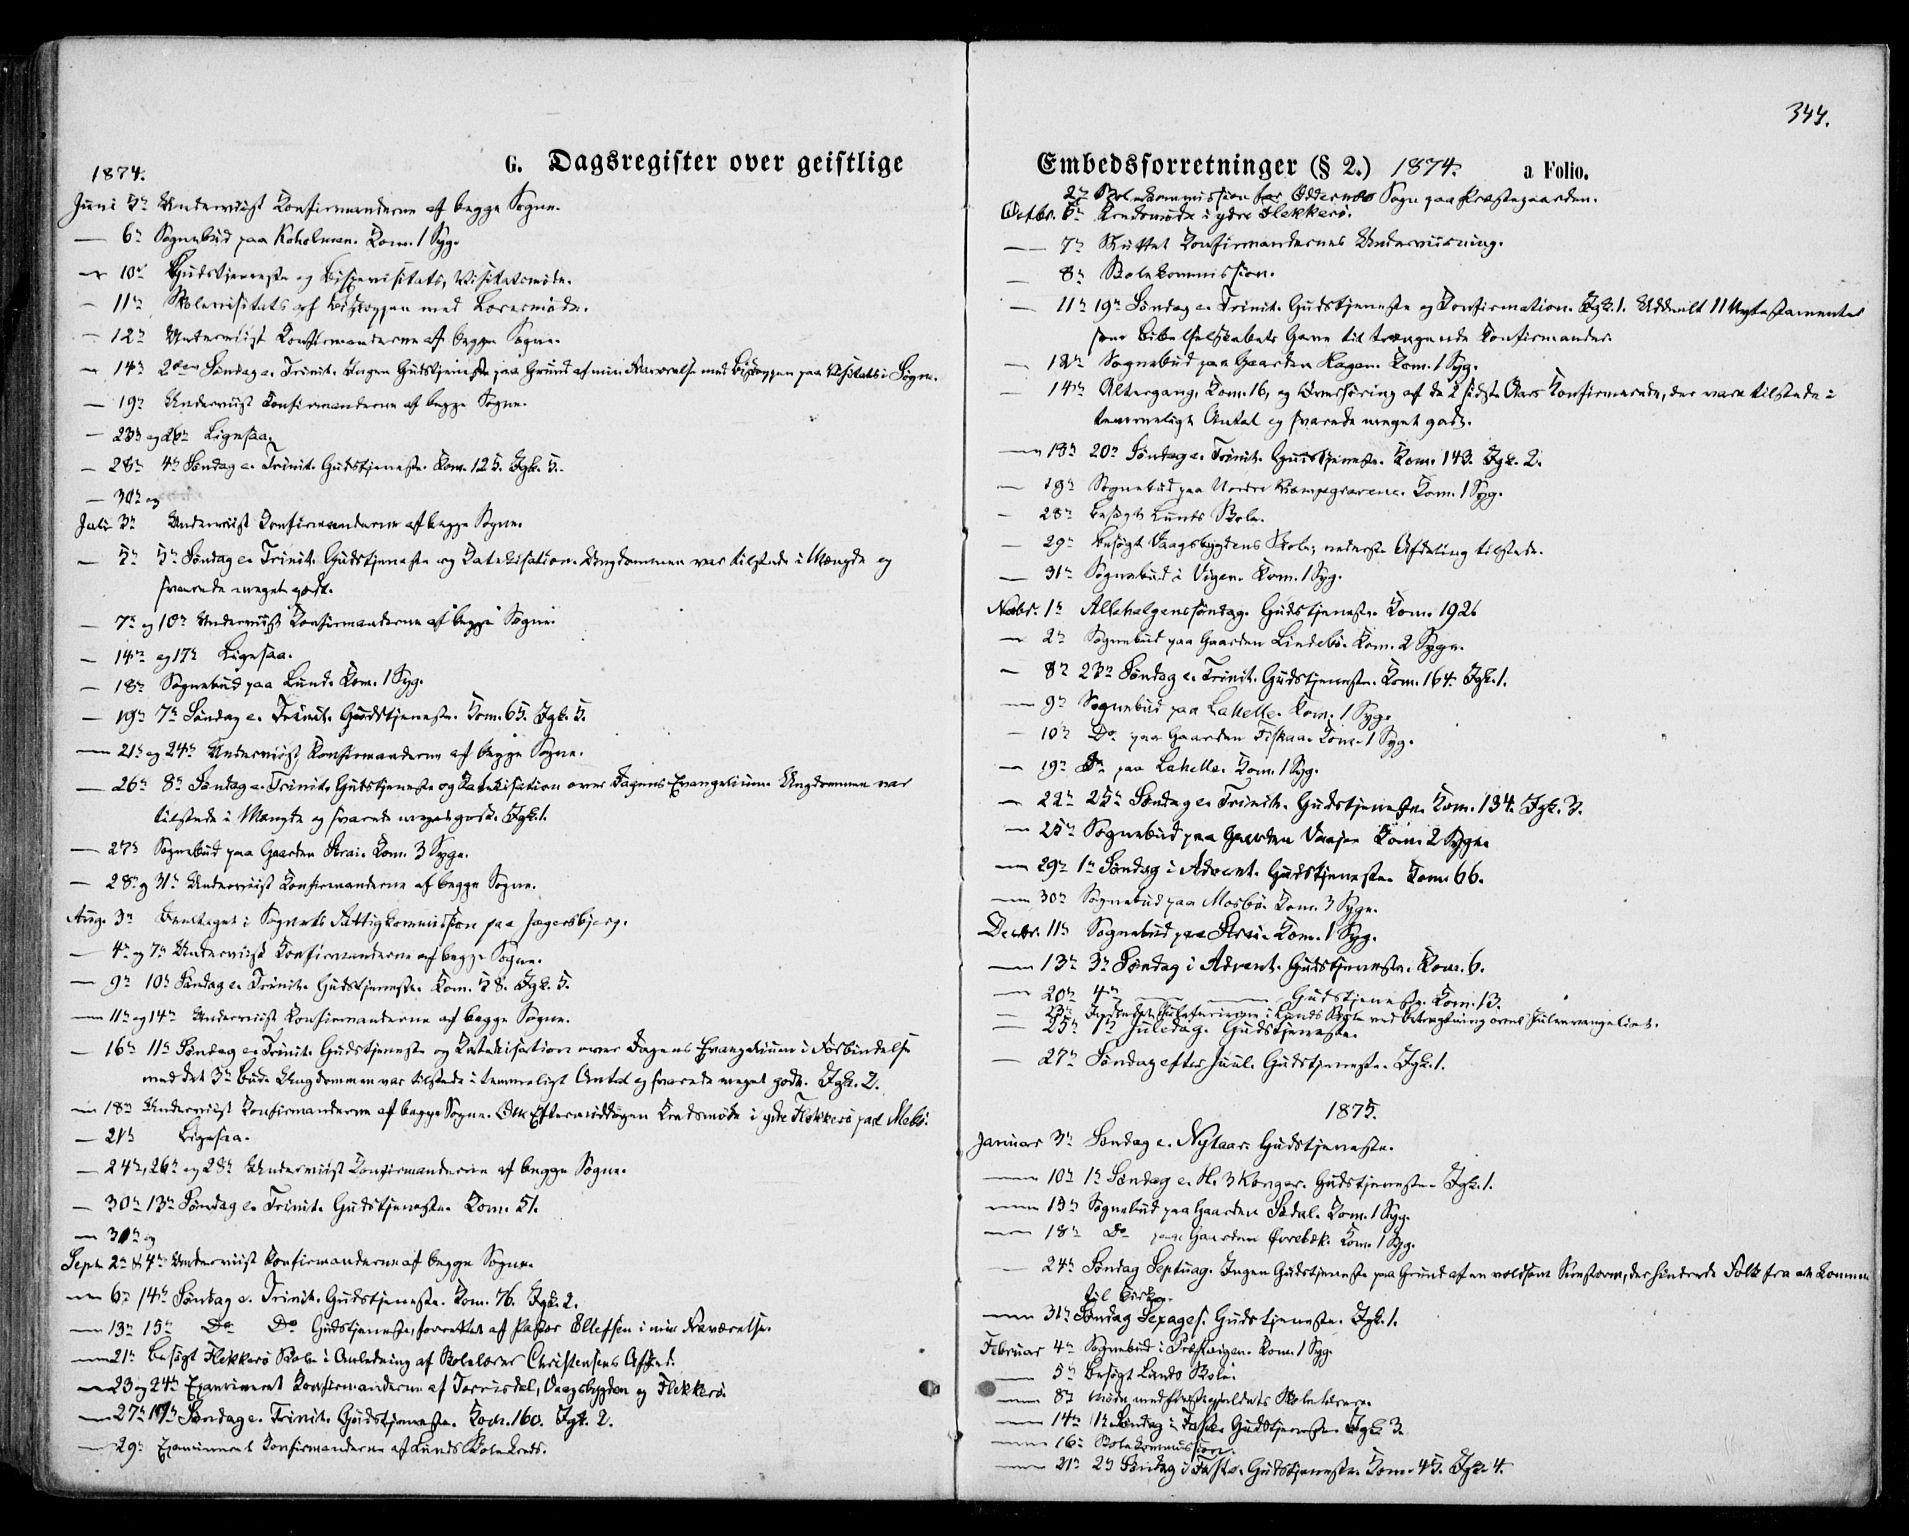 344.
G. Dagsregister over geistlige Embedsforretninger (§ 2.) 1874. a Folio.
1874.
Juni 5te Underviist Konfirmanderne af begge Sogne.
— 6te Sognebud paa Koholmen. Kom. 1 Syg.
— 10de Gudstjeneste og Bispevisitats, Visitatsmøde.
— 11te Skolevisitats af Biskoppen med Lærermøde.
— 12te Underviist Konfirmanderne af begge Sogne.
— 14de 2den Søndag e. Trinit. Ingen Gudstjeneste paa Grund af min Nærværelse med Biskoppen paa Visitats i Søgne.
— 19de Underviist Konfirmanderne af begge Sogne.
— 23de og 26de Ligesaa.
— 28de 4de Søndag e. Trinit. Gudstjeneste. Kom. 125. Igk. 5.
— 30te og
Juli 3de Underviist Konfirmanderne af begge Sogne.
— 5te 5te Søndag e. Trinit. Gudstjeneste og Katekisation. Ungdommen var tilstede i Mængde og
svarede meget godt.
— 7de og 10de Underviist Konfirmanderne af begge Sogne.
— 14de og 17de Ligesaa.
— 18de Sognebud paa Lund. Kom. 1 Syg.
— 19de 7de Søndag e. Trinit. Gudstjeneste. Kom. 65. Igk. 5.
— 21de og 24de Underviist Konfirmanderne af begge Sogne.
— 26de 8de Søndag e. Trinit. Gudstjeneste og Katekisation over Dagens Evangelium. Ungdommen var
tilstede i Mængde og svarede meget godt. Igk. 1.
— 27de Sognebud paa Gaarden Strai. Kom. 3 Syge.
— 28de og 31te Underviist Konfirmanderne af begge Sogne.
Aug. 3de Deeltaget i Sognets Fattigkommission paa Jægersbjerg.
— 4de og 7de Underviist Konfirmanderne af begge Sogne.
— 9de 10de Søndag e. Trinit. Gudstjeneste. Kom. 58. Igk. 5.
— 11te og 14de Underviist Konfirmanderne af begge Sogne.
— 16de 11te Søndag e. Trinit. Gudstjeneste og Katekisation over Dagens Evangelium i Forbindelse
med det 3de Bud. Ungdommen var tilstede i temmeligt Antal og svarede meget godt. Igk. 2.
— 18de Underviist Konfirmanderne af begge Sogne. Om Eftermiddagen Kredsmøde i ydre Flekkerø paa Mæbø.
— 21de Ligesaa.
— 24de, 26de og 28de Underviist Konfirmanderne af begge Sogne.
— 30te 13de Søndag e. Trinit. Gudstjeneste. Kom. 51.
— 31te og
Sept. 2den & 4de Underviist Konfirmanderne af begge Sogne.
— 6te 14de Søndag e. Trinit. Gudstjeneste. Kom. 76. Igk. 2.
— 13de 15de Do Do Gudstjeneste, forrettet af Pastor Ellefsen i min Nærværelse.
— 21de Besøgt Flekkerø Skole i Anledning af Skolelærer Christensens Afsked.
— 23 og 24de Examineret Konfirmanderne af Torrisdal, Vaagsbygden og Flekkerø.
— 27de 17de Søndag e. Trinit. Gudstjeneste. Kom. 160. Igk. 2.
— 29de Examineret Konfirmanderne af Lunds Skolekreds.
2den Skolekommission for Oddernes Sogn paa Præstegaarden.
Octbr. 6te Kredsmøde i ydre Flekkerø.
— 7de Sluttet Konfirmandernes Underviisning.
— 8de Skolekommission.
— 11te 19de Søndag e. Trinit. Gudstjeneste og Konfirmation. Igk. 1. Uddeelt 11 Nytestamenter
som Bibelselskabets Gave til trængende Konfirmander.
— 12te Sognebud paa Gaarden Hagen. Kom. 1 Syg.
— 14de Altergang. Kom. 16, og Overhøring af de 2 sidste Aars Konfirmerede, der vare tilstede i
temmeligt Antal og svarede meget godt.
— 18de 20de Søndag e. Trinit. Gudstjeneste. Kom. 143. Igk. 2.
— 19de Sognebud paa Nordre Kiempegravene. Kom. 1 Syg.
— 28de Besøgt Lunds Skole.
— 29de Besøgt Vaagsbygdens Skole; nederste Afdeling tilstede.
— 31te Sognebud i Vigen. Kom. 1 Syg.
Novbr. 1te Allehelgenssøndag. Gudstjeneste. Kom. 192.
— 2den Sognebud paa Gaarden Lindebø. Kom. 2 Syge.
— 8de 23de Søndag e. Trinit. Gudstjeneste. Kom. 164. Igk. 1.
— 9de Sognebud paa Lahelle. Kom. 1 Syg.
— 10de Do paa Gaarden Fiskaa. Kom. 1 Syg.
— 19de Do paa Lahelle. Kom. 1 Syg.
— 22de 25de Søndag e. Trinit. Gudstjeneste. Kom. 134. Igk. 3.
— 25de Sognebud paa Gaarden Kom. 2 Syge.
— 29de 1te Søndag i Advent. Gudstjeneste. Kom. 66.
— 30te Sognebud paa Mosbø. Kom. 3 Syge.
Decbr. 11te Sognebud paa Strai. Kom. 1 Syg.
— 13de 3de Søndag i Advent. Gudstjeneste. Kom. 6.
— 20de 4de — — Gudstjeneste. Kom. 13.
— 23de i Lunds Skole med Betragtning over Juleevangeliet.
— 25de 1te Juledag. Gudstjeneste.
— 27de Søndag efter Juul. Gudstjeneste. Igk. 1.
1875.
Januar 3de Søndag e. Nytaar. Gudstjeneste.
— 10de 1te Søndag e. H. 3 Konger. Gudstjeneste. Igk. 1.
— 13de Sognebud paa Gaarden Sødal. Kom. 1 Syg.
— 18de Do paa Gaarden Øvrebæk. Kom. 1 Syg.
— 24de Søndag Septuag. Ingen Gudstjeneste paa Grund af en voldsom Sneestorm, der hindrede Folk fra at komme
til Kirke.
— 31te Søndag Sexages. Gudstjeneste. Igk. 1.
Februar 4de Sognebud i Præstvigen. Kom. 1 Syg.
— 5te Besøgt Lunds Skole.
— 8de Møde med Præstegjeldets Skolelærere.
— 14de 1te Søndag i Faste. Gudstjeneste. Igk. 3.
— 16de Skolekommission.
— 21de 2den Søndag i Faste. Gudstjeneste. Kom. 45. Igk. 4.